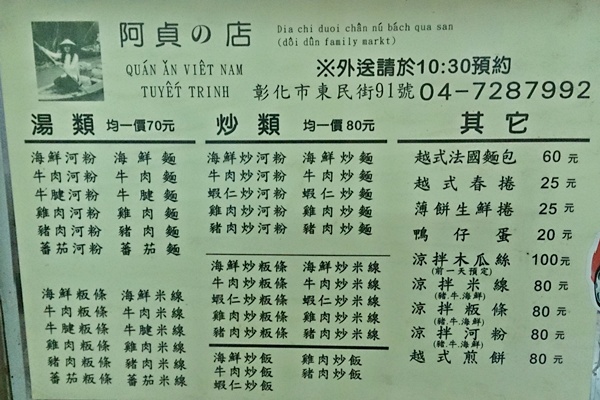 阿貞の店
Dia chi duoi chân nú bách qua san
(dôi dûn family markt)
QUÁN ĂN VIÊT NAM
TUYẾT TRINH
※外送請於10:30預約
彰化市東民街91號 04-7287992
湯類 均一價70元
海鮮河粉 海鮮麵
牛肉河粉 牛肉麵
牛腱河粉 牛腱麵
雞肉河粉 雞肉麵
豬肉河粉 豬肉麵
蕃茄河粉 蕃茄麵
海鮮粄條 海鮮米線
牛肉粄條 牛肉米線
牛腱粄條 牛腱米線
雞肉粄條 雞肉米線
豬肉粄條 豬肉米線
蕃茄粄條 蕃茄米線
炒類 均一價80元
海鮮炒河粉 海鮮炒麵
牛肉炒河粉 牛肉炒麵
蝦仁炒河粉 蝦仁炒麵
雞肉炒河粉 雞肉炒麵
豬肉炒河粉 豬肉炒麵
海鮮炒粄條 海鮮炒米線
牛肉炒粄條 牛肉炒米線
蝦仁炒粄條 蝦仁炒米線
雞肉炒粄條 雞肉炒米線
豬肉炒粄條 豬肉炒米線
海鮮炒飯 雞肉炒飯
牛肉炒飯 豬肉炒飯
蝦仁炒飯
其它
越式法國麵包 60元
越式春捲 25元
薄餅生鮮捲 25元
鴨仔蛋 20元
涼拌木瓜絲 100元
(前一天預定)
涼拌米線 80元
(豬.牛.海鮮)
涼拌粄條 80元
(豬.牛.海鮮)
涼拌河粉 80元
(豬.牛.海鮮)
越式煎餅 80元